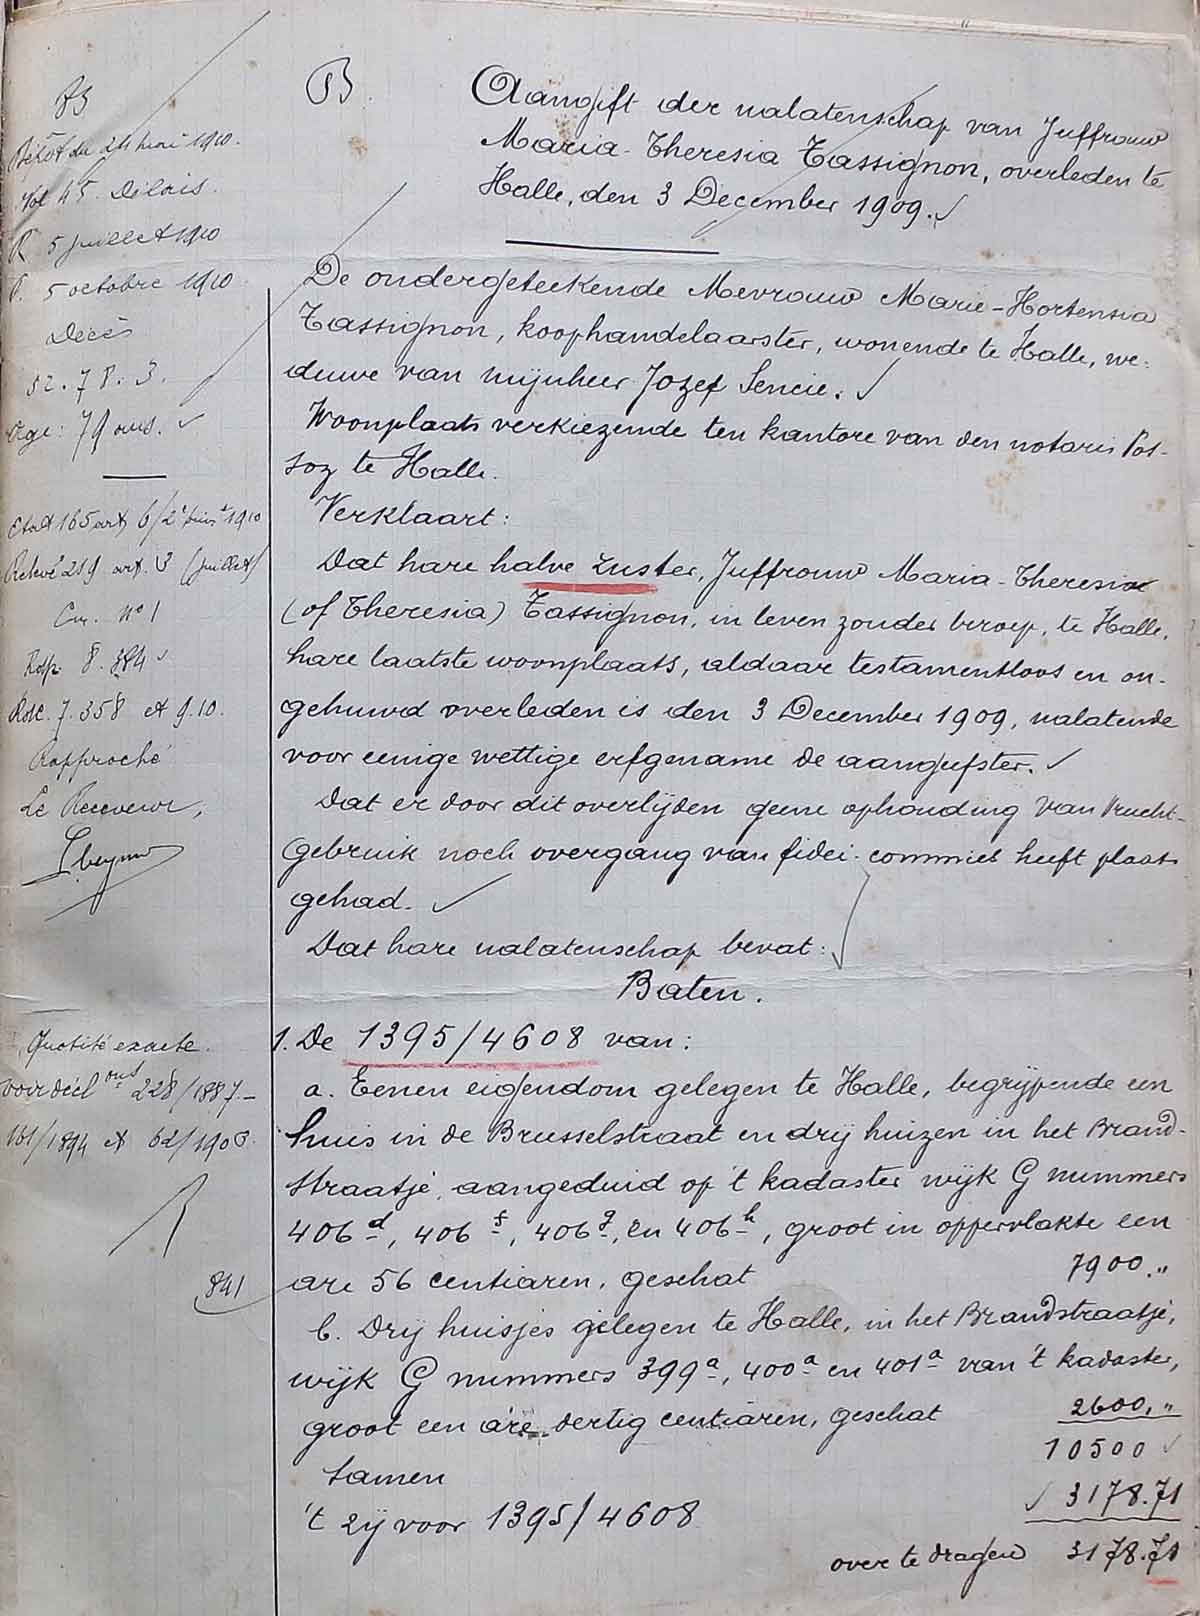 B
Aangift der nalatenschap van Juffrouw
Maria-Theresia Tassignon, overleden te
Halle, den 3 December 1909.
De ondergeteekende Mevrouw Marie-Hortensia
Tassignon, koophandelaarster, wonende te Halle, we-
duwe van mijnheer Jozef Sencie.
Woonplaats verkiezende ten kantore van den notaris Pos-
soz te Halle.
Verklaart:
Dat hare halve zuster, Juffrouw Maria-Theresia
(of Theresia) Tassignon, in leven zonder beroep, te Halle,
hare laatste woonplaats, aldaar testamentloos en on-
gehuwd overleden is den 3 December 1909, nalatende
voor eenige wettige erfgename de aangeefster.
Dat er door dit overlijden geene ophouding van vrucht-
gebruik noch overgang van fidei-commies heeft plaats
gehad.
Dat hare nalatenschap bevat:
Baten.
1. De 1395/4608 van:
a. Eenen eigendom gelegen te Halle, begrijpende een
huis in de Brusselstraat en drij huizen in het Brand-
straatje, aangeduid op 't kadaster wijk G nummers
406d, 406f, 406g, en 406h, groot in oppervlakte een
are 56 centiaren, geschat 7900."
b. Drij huisjes gelegen te Halle, in het Brandstraatje,
wijk G nummers 399a, 400a en 401a van 't kadaster,
groot een are dertig centiaren, geschat 2600,"
Samen 10500
't zij voor 1395/4608 3178.71
over te dragen 3178.71
83
Dépôt du 24 mai 1910.
Vol 45. Délais
R 5 juillet 1910
P. 5 octobre 1910
Décès
52. 78. 3.
Age: 79 ans.
Etat 165 art 6/2
Relevé 289 art. 3 (juillet)
n° 1
8. 384
7. 358 et 9.10.
Rapproché
Le Receveur,
Quotité exacte
voir décl ons 228/1887.-
161/1894 et 62/1903.
841